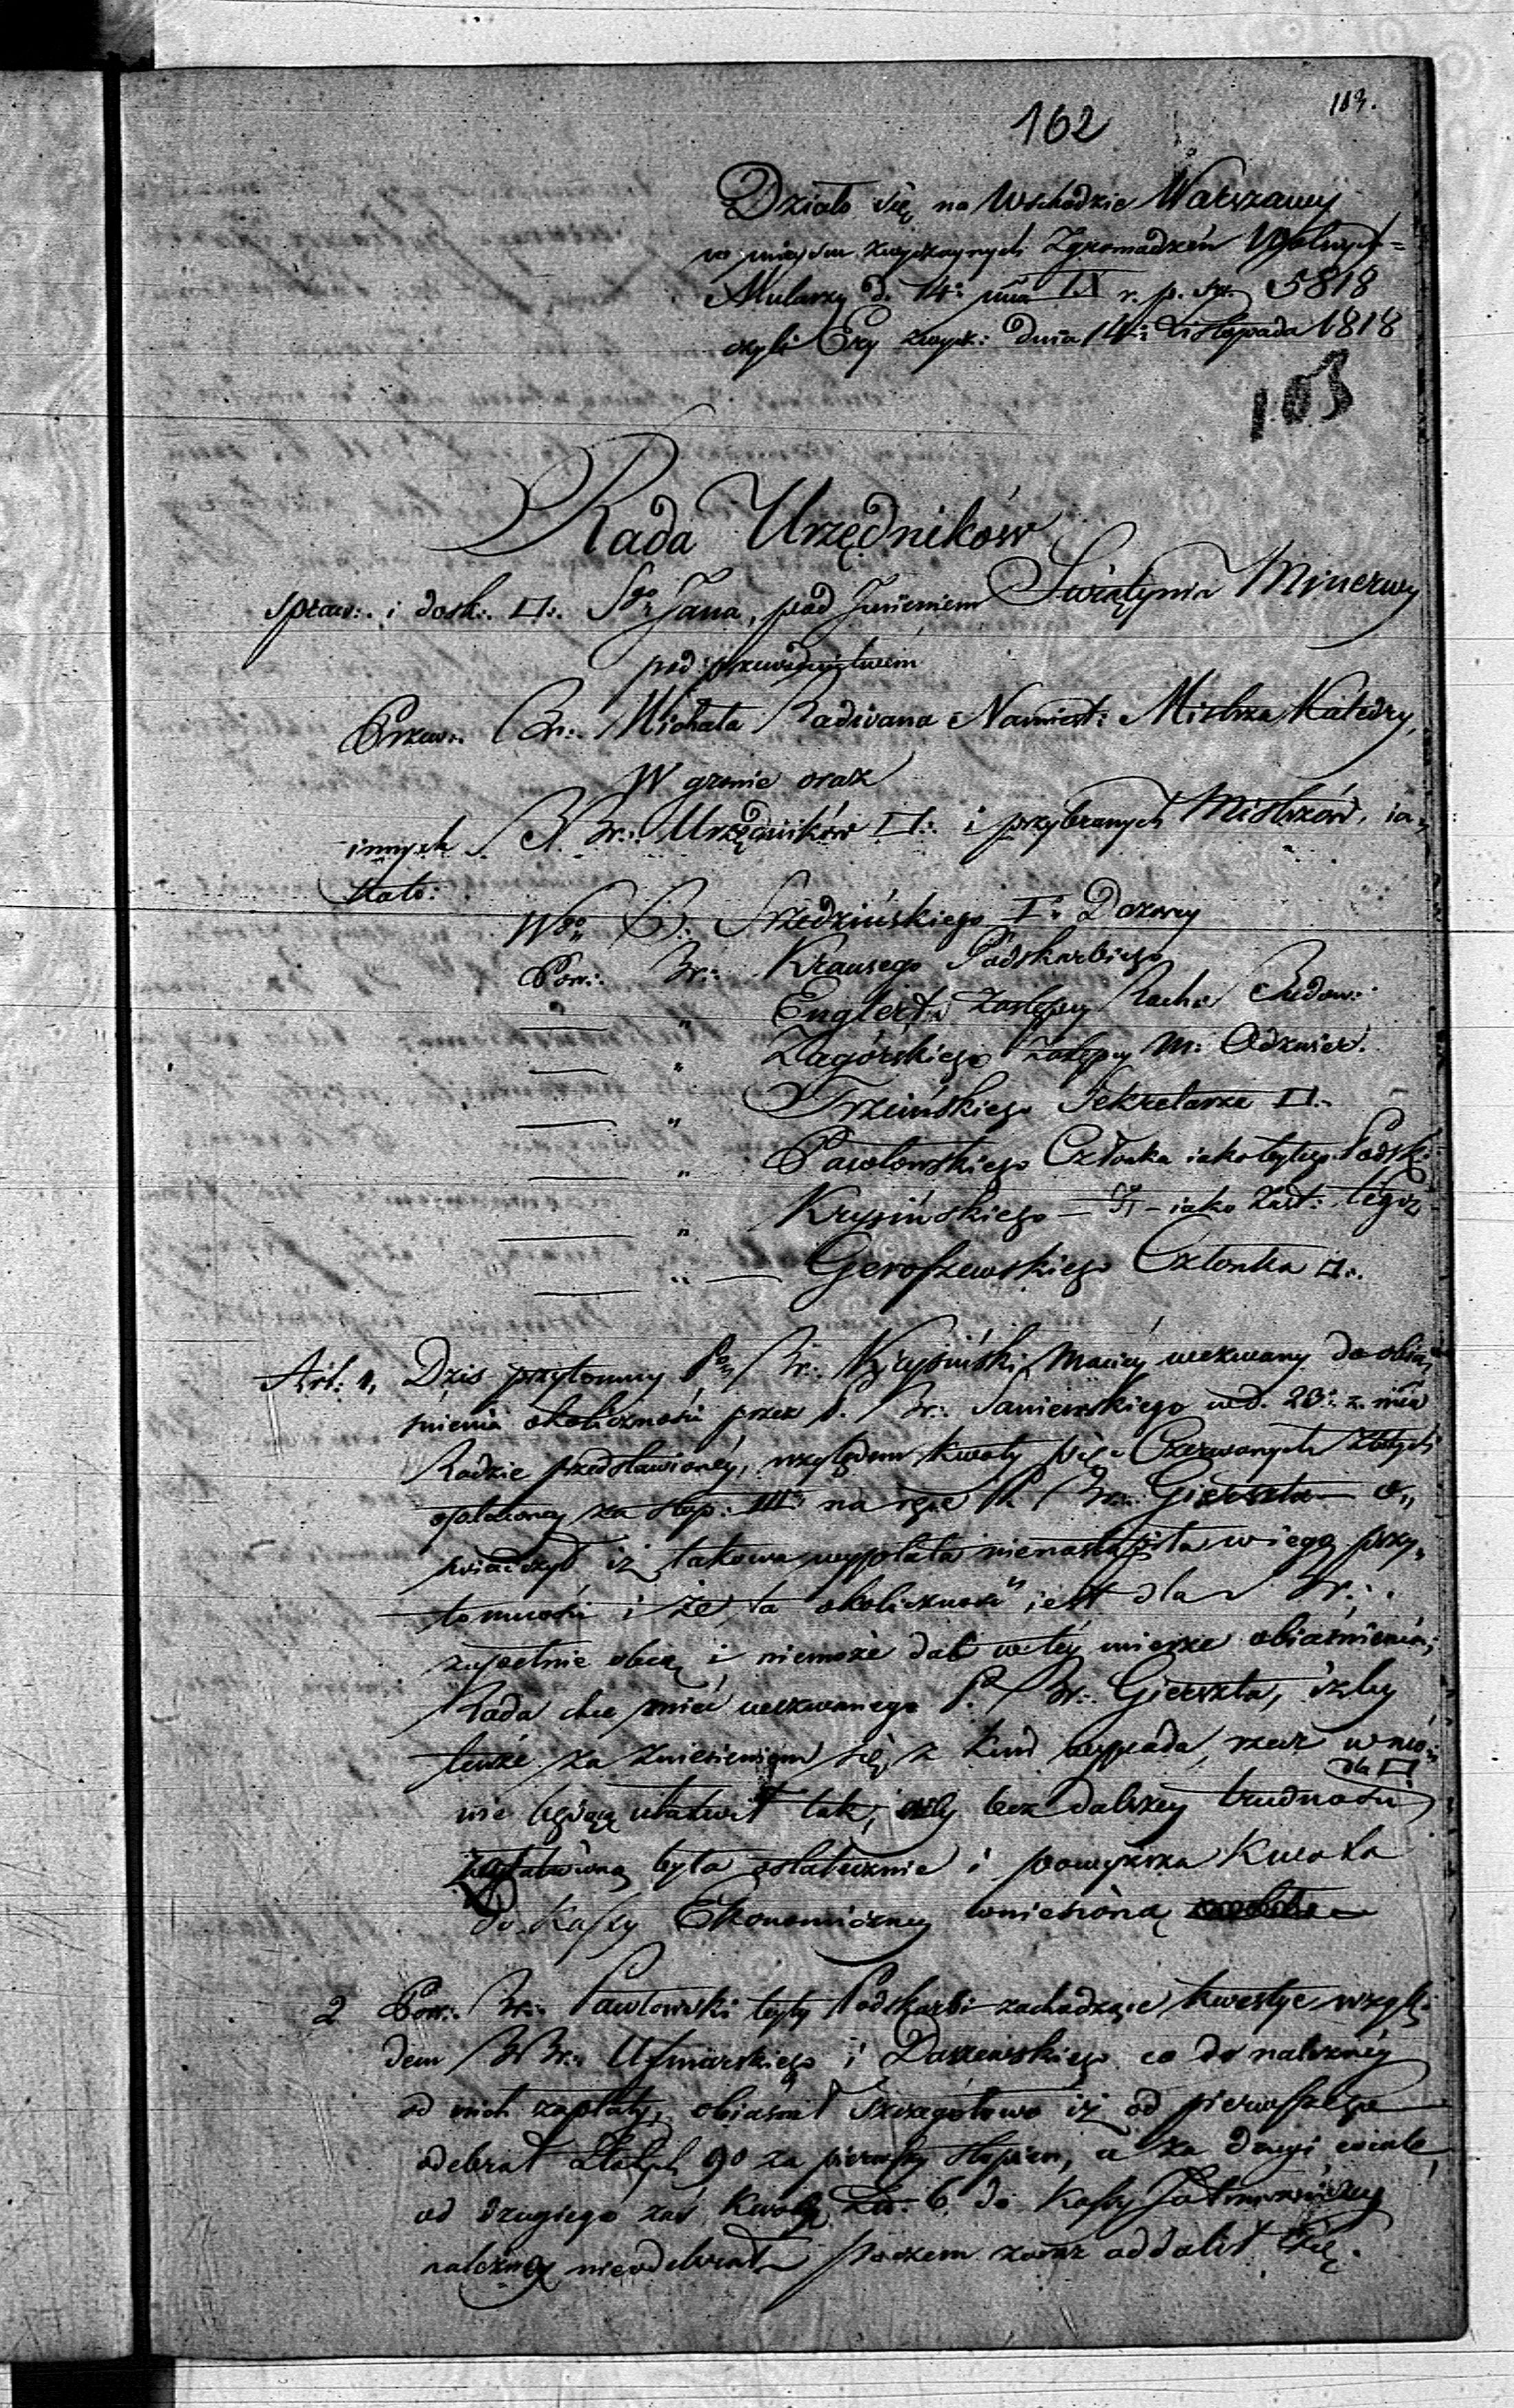 162
113.
Działo się na Wschodzie Warszawy
w miejscu zwyczaynych Zgromadzeń Wolnych=
Mularzy d. 14: mca IX r. p. św. 5818
czyli Ery zwycz: dnia 14: Listopada 1818
103
Rada Urzędników
spraw:. i dosk:. □:. Sgo Jana, pod Imieniem Świątynia Minerwy
pod przewodnictwem
Przew:. Br:. Michała Radivana Namiest: Mistrza Katedry,
W gronie oraz
innych BBr:. Urzędników □:. i przybranych Mistrzów, ia„
kato:
Wgo Br:. Srzedzińskiego I: Dozorcy
Pow:. Br:. Krausego Podskarbiego
" Englerta Zastępcy Budow:
" Zagórskiego Zastępcy M: Odzwier.
" Trzcińskiego Sekretarza □:.
" Pawłowskiego Członka iako byłego Podsk:
" Krysińskiego — iako Zast: tegoż
" — Geroszewskiego Członka □:.
Art: 1, Dziś przytomny Br:. Krysiński Maciey wezwany do obia„
śnienia okoliczności przez P. Br:. Saniewskiego d. 23: z. mca
Radzie przedstawioney, względem kwoty Czerwonych Złotych
opłaconey za stop: III na ręce P. Br:. Gierszta — o„
świadczył iż takowa wypłata nienastąpiła w iego przy„
tomności i że ta okoliczność iest dla Br:.
zupełnie obcą i niemoże dać w tey mierze obiaśnienia;
Rada chce mieć wezwanego P. Br:. Gierszta, iżby
tenże za zniesieniem się z kim wypada, rzecz w mo„
wie będącą ułatwił tak, iżby bez dalszey dla □ trudności
była ostatecznie i powyższa Kwota
do Kassy Ekonomiczney wniesioną
2 Pow:. Br:. Pawłowski były Podskarbi zachodzące kwestye wzglę„
dem BBr:. Uzniarskiego i Daszewskiego co do należney
od nich zapłaty, obiaśnił szczegółowo iż od pierwszego
odebrał Złotych 90 za pierwszy stopień, a za drugi
od drugiego zaś Kwoty 6 do Kassy Jałmużniczey
należney nieodebrał poczem zaraz oddalił się.